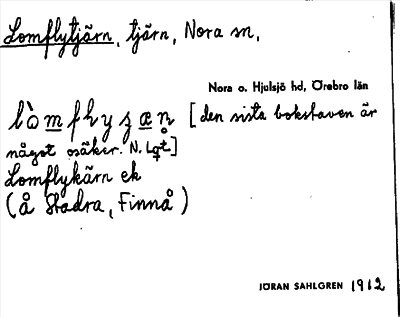 Lomflytjärn, tjärn, Nora sn.
Nora o. Hjulsjö hd, Örebro län
[den sista bokstaven är
något osäker. N. Lqt.]
Lomflykärn ek
(å Stadra, Finnå)
JÖRAN SAHLGREN 1912